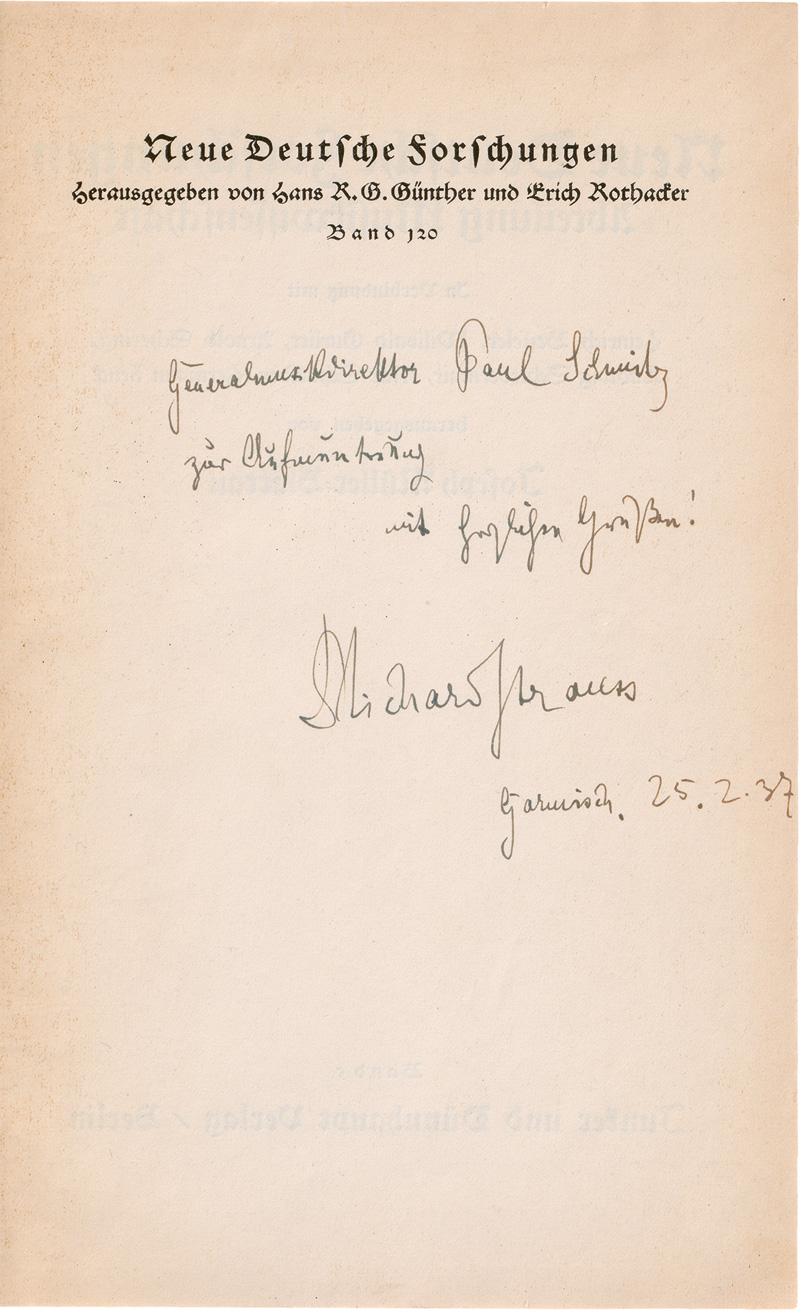 Neue Deutsche Forschungen
Herausgegeben von Hans R. G. Günther und Erich Rothacker
Band 120
Generalmusikdirektor Paul Schmitz
zur Aufmunterung
mit herzlichen Grüßen!
Richard Strauss
Garmisch, 25. 2. 37
Band
Junker und Dünnhaupt Verlag / Berlin